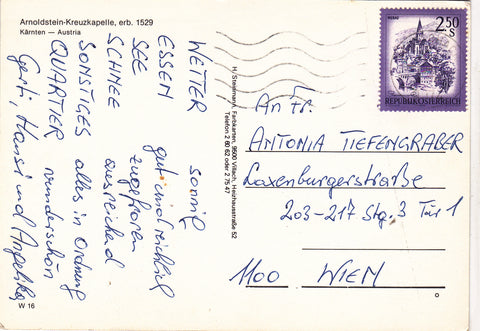 Arnoldstein-Kreuzkapelle, erb. 1529
Kärnten — Austria
WETTER sonnig
ESSEN gut und reichlich
SEE zugefroren
SCHNEE ausreichend
SONSTIGES alles in Ordnung
QUARTIER wunderschön
Gerti, Hansi und Angelika
W 16
Farbkarten, 9500 Villach, Heizhausstraße 52
Telefon 2 60 62 oder 2 75 47
2.50
S
MURAU
REPUBLIK ÖSTERREICH
An Fr.
ANTONIA TIEFENGRABER
Laxenburgerstraße
203-217 Stg. 3 Tür 1
1100 WIEN